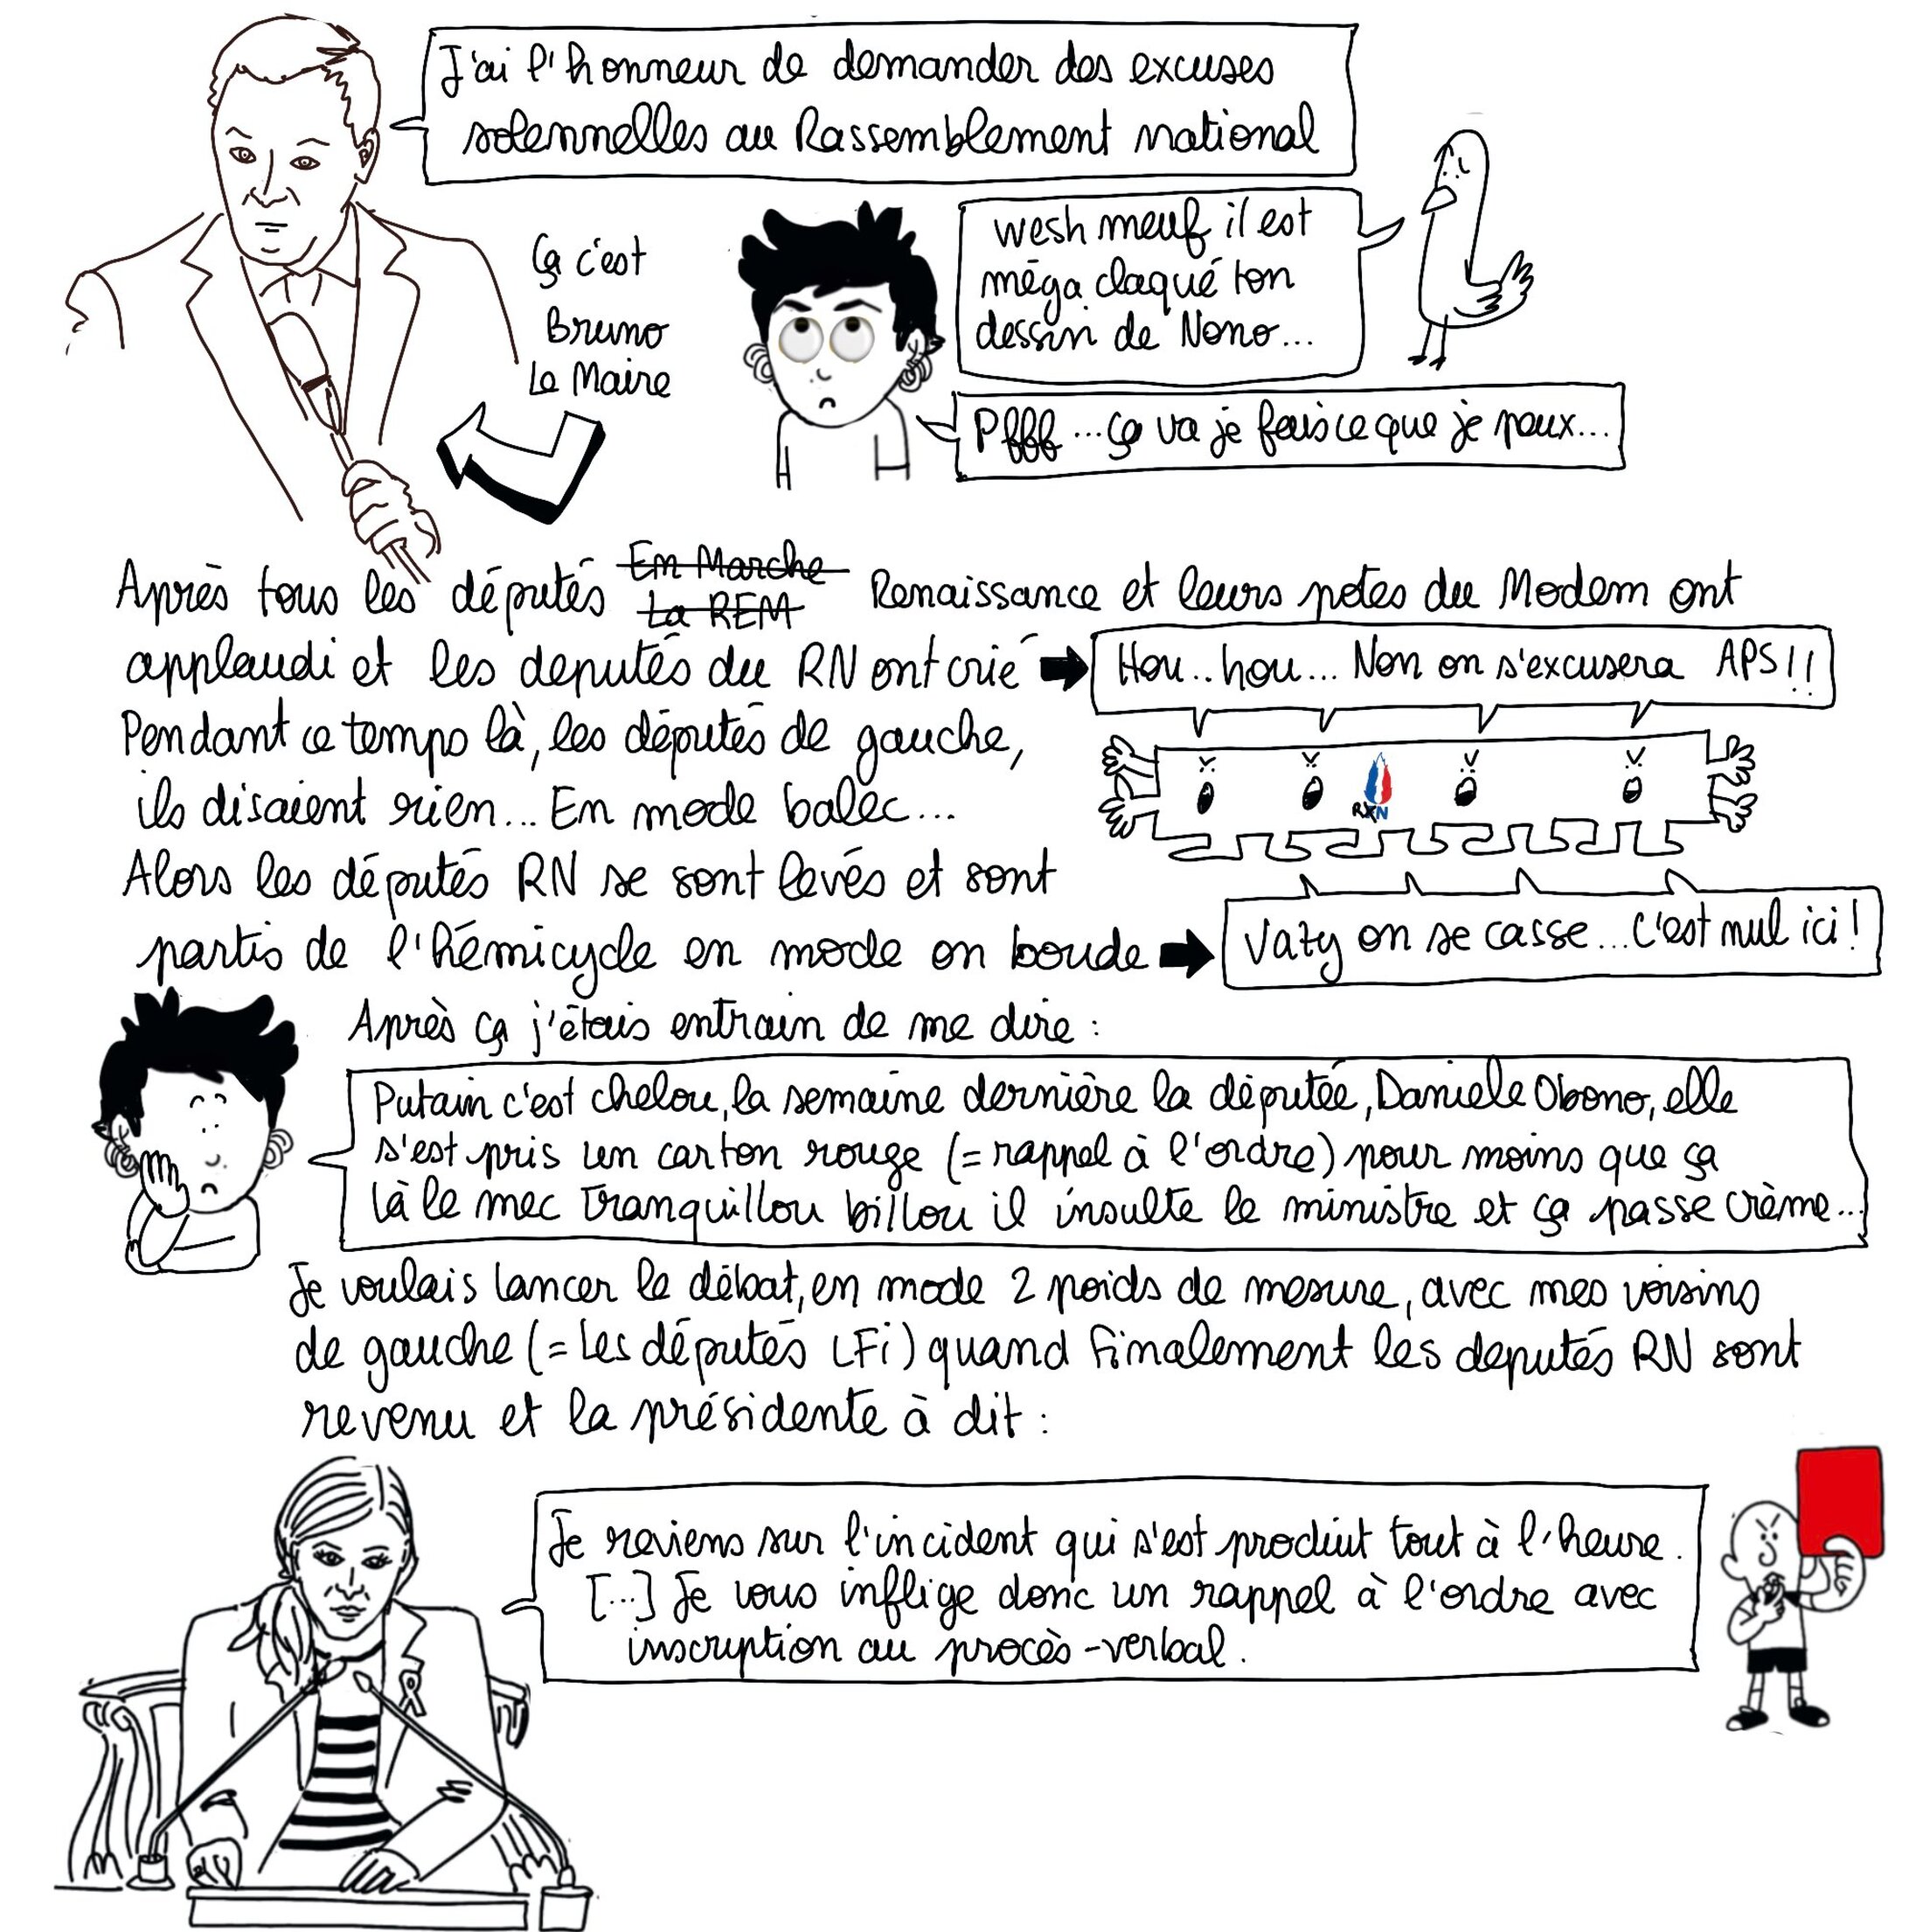 J'ai l'honneur de demander des excuses
solennelles au Rassemblement national
Ça c'est
Bruno
Le Maire
wesh meuf il est
méga claqué ton
dessin de Nono...
Pffff...ça va je fais ce que je peux...
Après tous les députés En Marche La REM Renaissance et leurs potes du Modem ont
applaudi et les deputés du RN ont crié
Hou..hou... Non on s'excusera APS!!
Pendant ce temps là, les députés de gauche,
ils disaient rien... En mode balec...
RN
Alors les députés RN se sont levés et sont
partis de l'hémicycle en mode on boude
Vazy on se casse...C'est nul ici!
Après ça j'étais entrain de me dire :
Putain c'est chelou, la semaine dernière la députée, Daniele Obono, elle
s'est pris un carton rouge (= rappel à l'ordre) pour moins que ça
là le mec Tranquillou billou il insulte le ministre et ça passe crème...
Je voulais lancer le débat, en mode 2 poids de mesure, avec mes voisins
de gauche (= Les députés LFi) quand finalement les deputés RN sont
revenu et la présidente à dit :
Je reviens sur l'incident qui s'est produit tout à l'heure.
[...] Je vous inflige donc un rappel à l'ordre avec
inscription au procès-verbal.